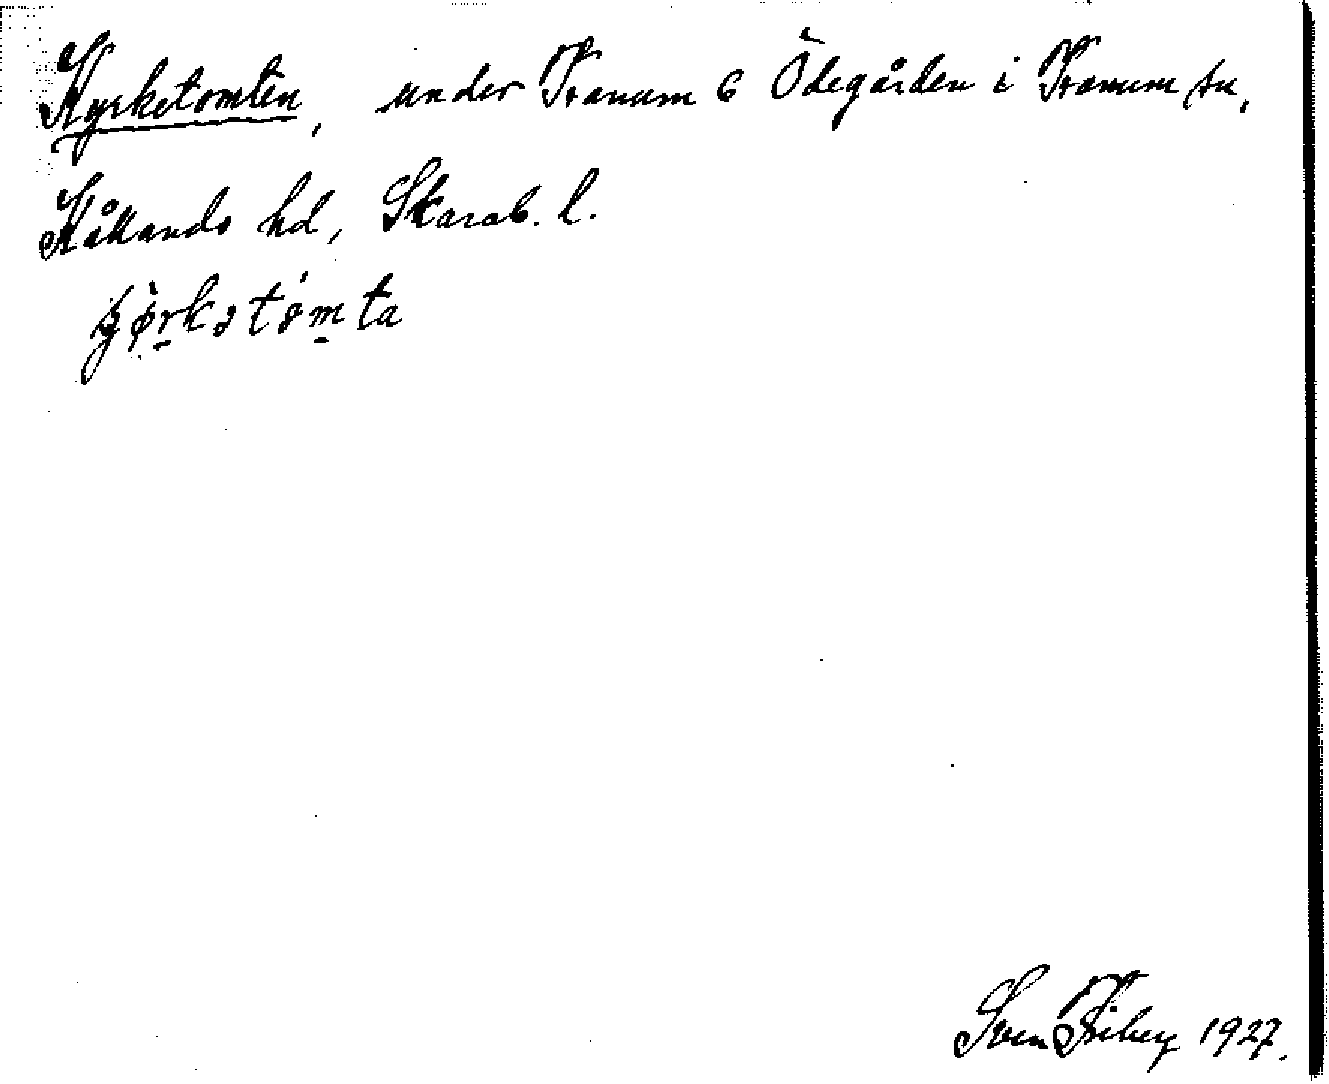 Kyrketomten, under Tranum 6 Ödegården i Tranum sn,
Kållands hd, Skarab. l.
Sven Fibey 1927.